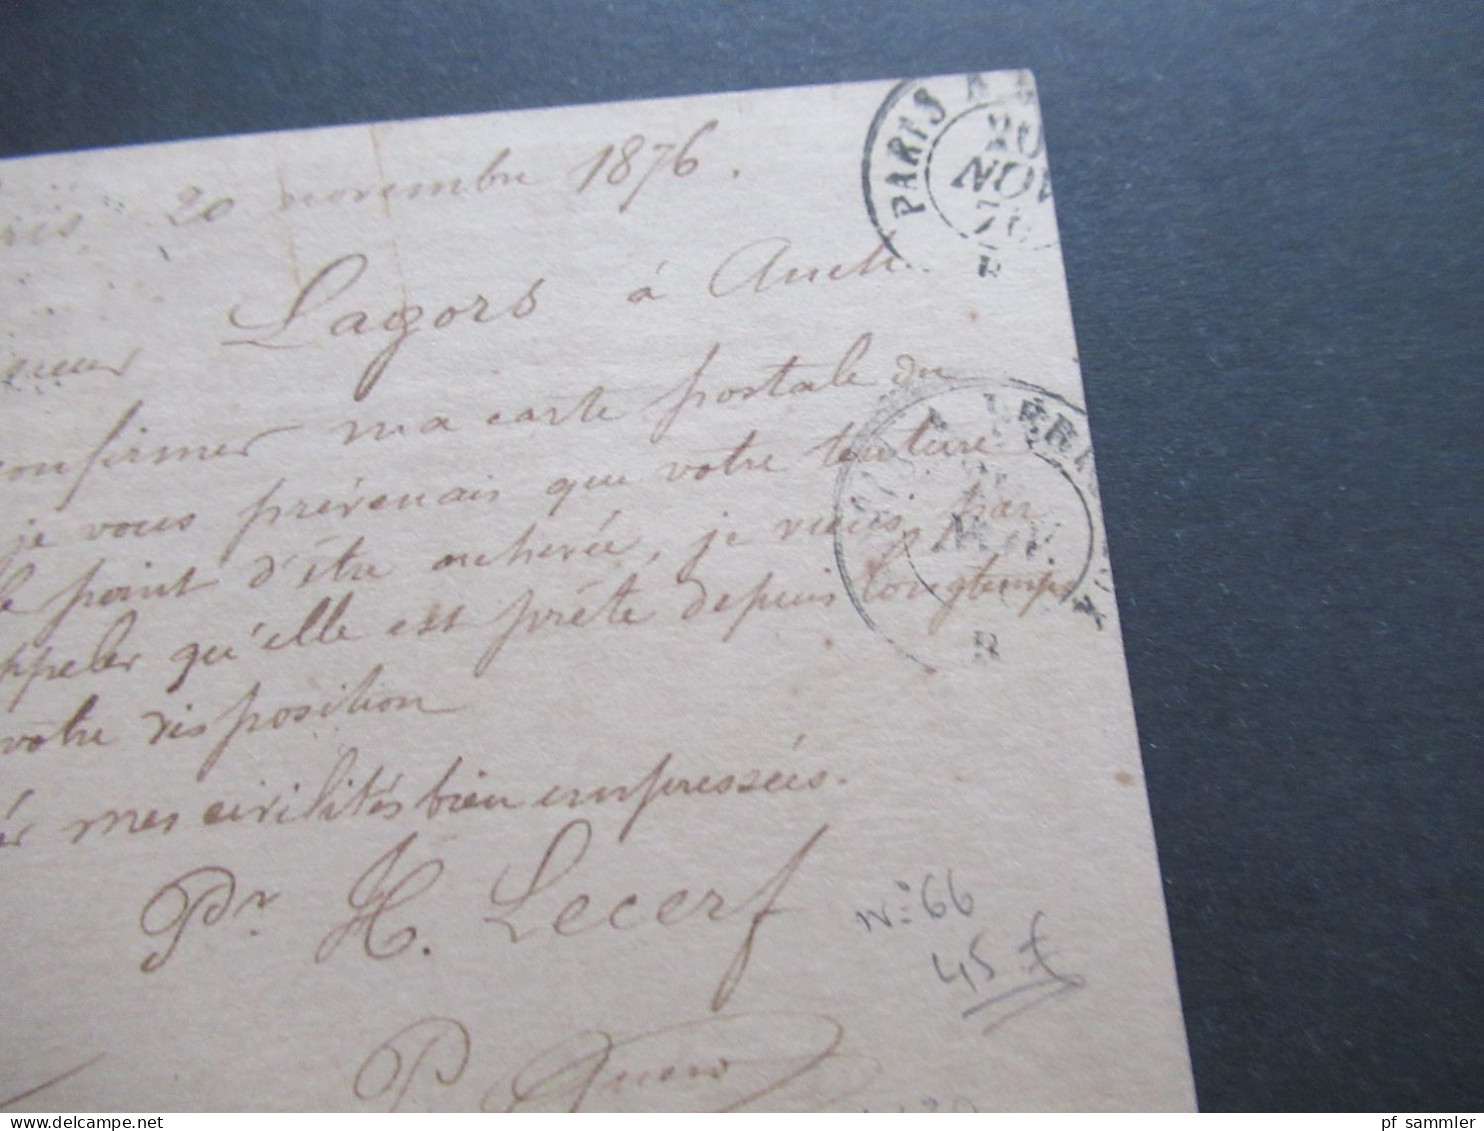 20 novembre 1876.
Lagors à Auch
confirmer ma carte postale du
je vous prévenais que votre tenture
le point d'être achevée, je viens, par
appeler qu'elle est prête depuis longtemps
votre disposition
mes civilités bien empressées.
Pr. H. Lecerf
P.
PARIS A
20
NOV
76
R
NOV.
R
No 66
45 f
pf sammler